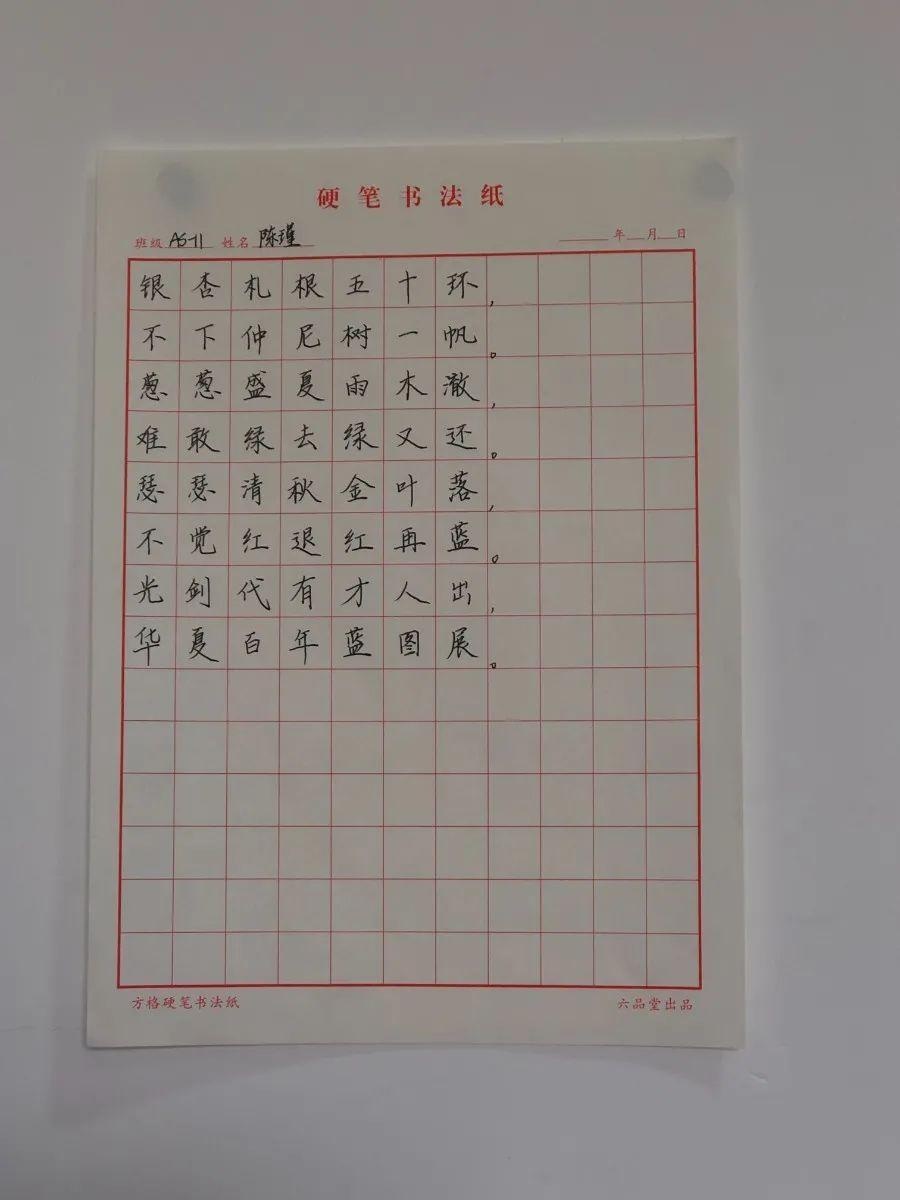 硬笔书法纸
班级 AS-11 姓名 陈瑾 年 月 日
银杏札根五十环,
不下仲尼树一帆。
葱葱盛夏雨木澈,
难敢绿去绿又还。
瑟瑟清秋金叶落,
不觉红退红再蓝。
光剑代有才人出,
华夏百年蓝图展。
方格硬笔书法纸 六品堂出品